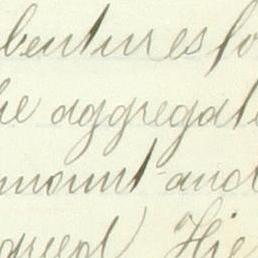 bentures fo
he aggregate
mount and
agreed) His